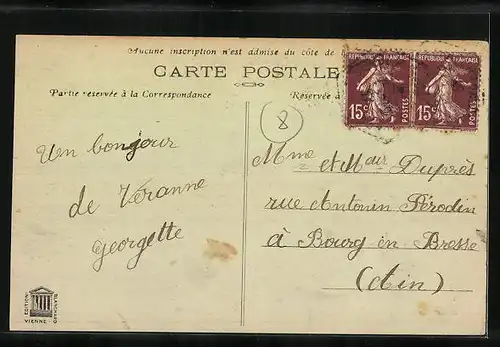 Aucune inscription n'est admise du côté de
CARTE POSTALE
Partie reservée à la Correspondance
Réservée à
RÉPUBLIQUE FRANÇAISE
15c POSTES
RÉPUBLIQUE FRANÇAISE
15c POSTES
8
Un bonjour
de Véranne
Georgette
Mme et Mr Duprès
rue Antonin Pérodin
à Bourg en Bresse
(Ain)
EDITION
BLANCHARD
VIENNE